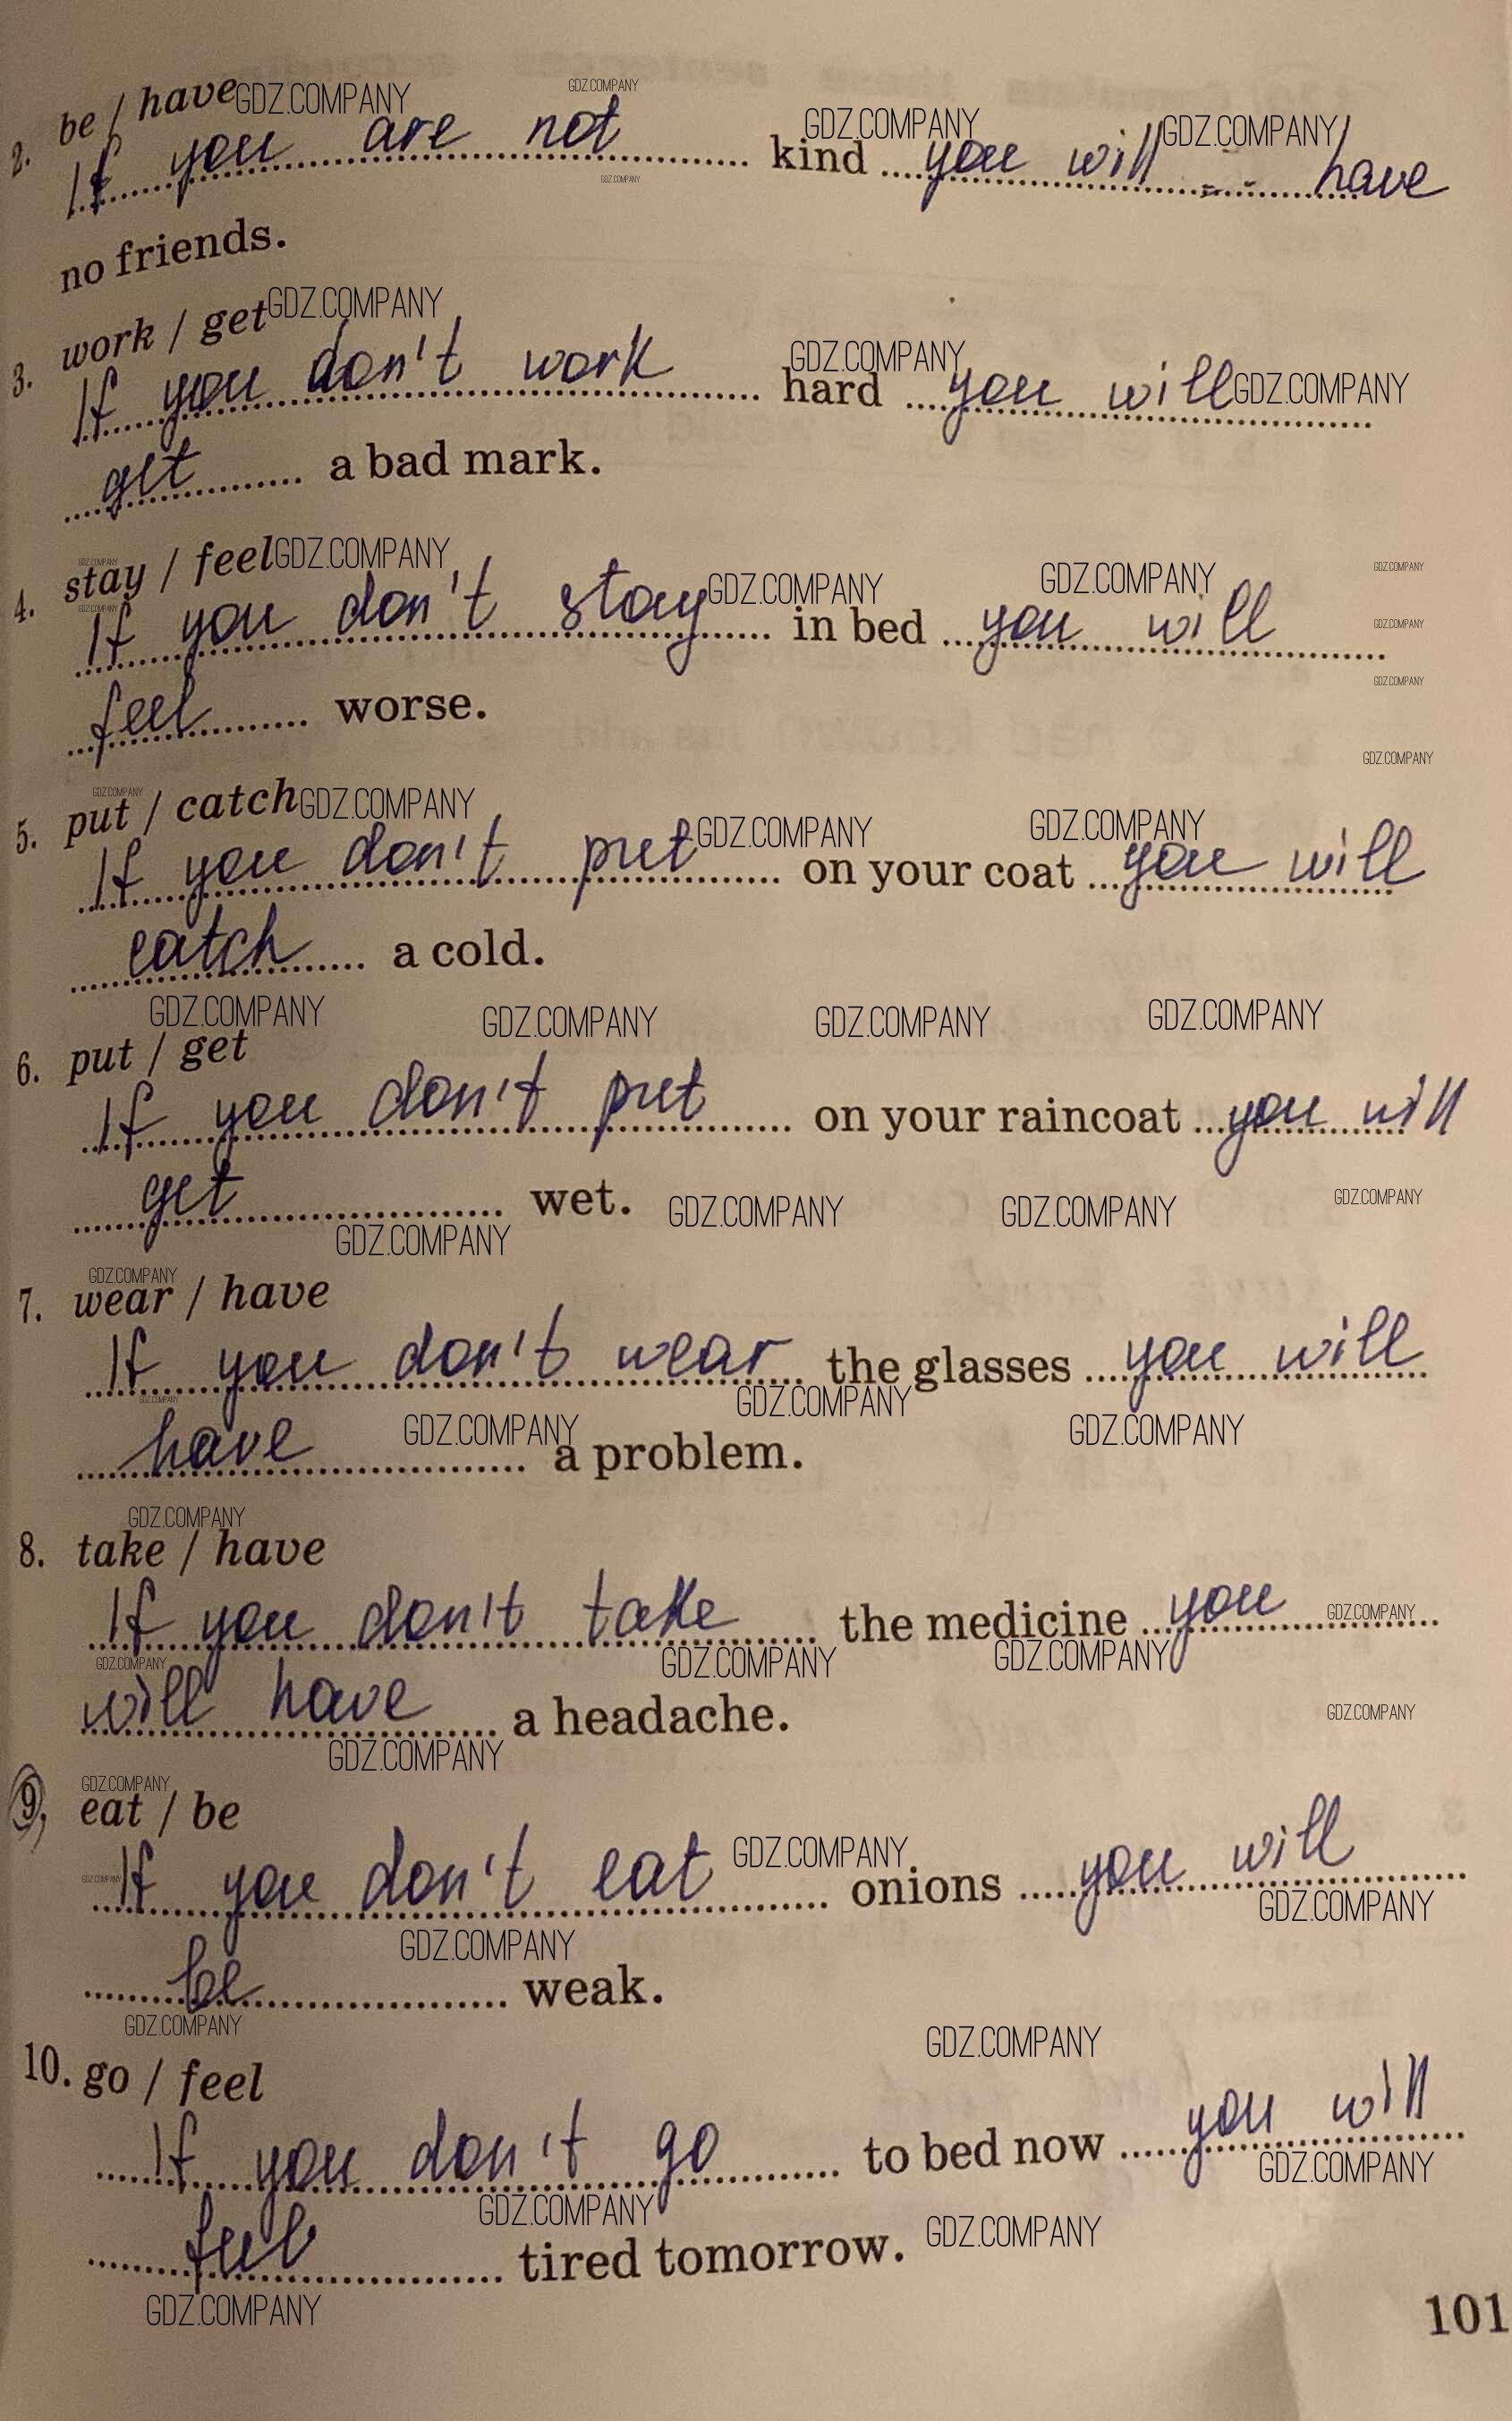 2. be / have
If you are not kind you will have
no friends.
3. work / get
If you don't work hard you will
get a bad mark.
4. stay / feel
If you don't stay in bed you will
feel worse.
5. put / catch
If you don't put on your coat you will
catch a cold.
6. put / get
If you don't put on your raincoat you will
get wet.
7. wear / have
If you don't wear the glasses you will
have a problem.
8. take / have
If you don't take the medicine you
will have a headache.
9. eat / be
If you don't eat onions you will
be weak.
10. go / feel
If you don't go to bed now you will
feel tired tomorrow.
101
GDZ.COMPANY